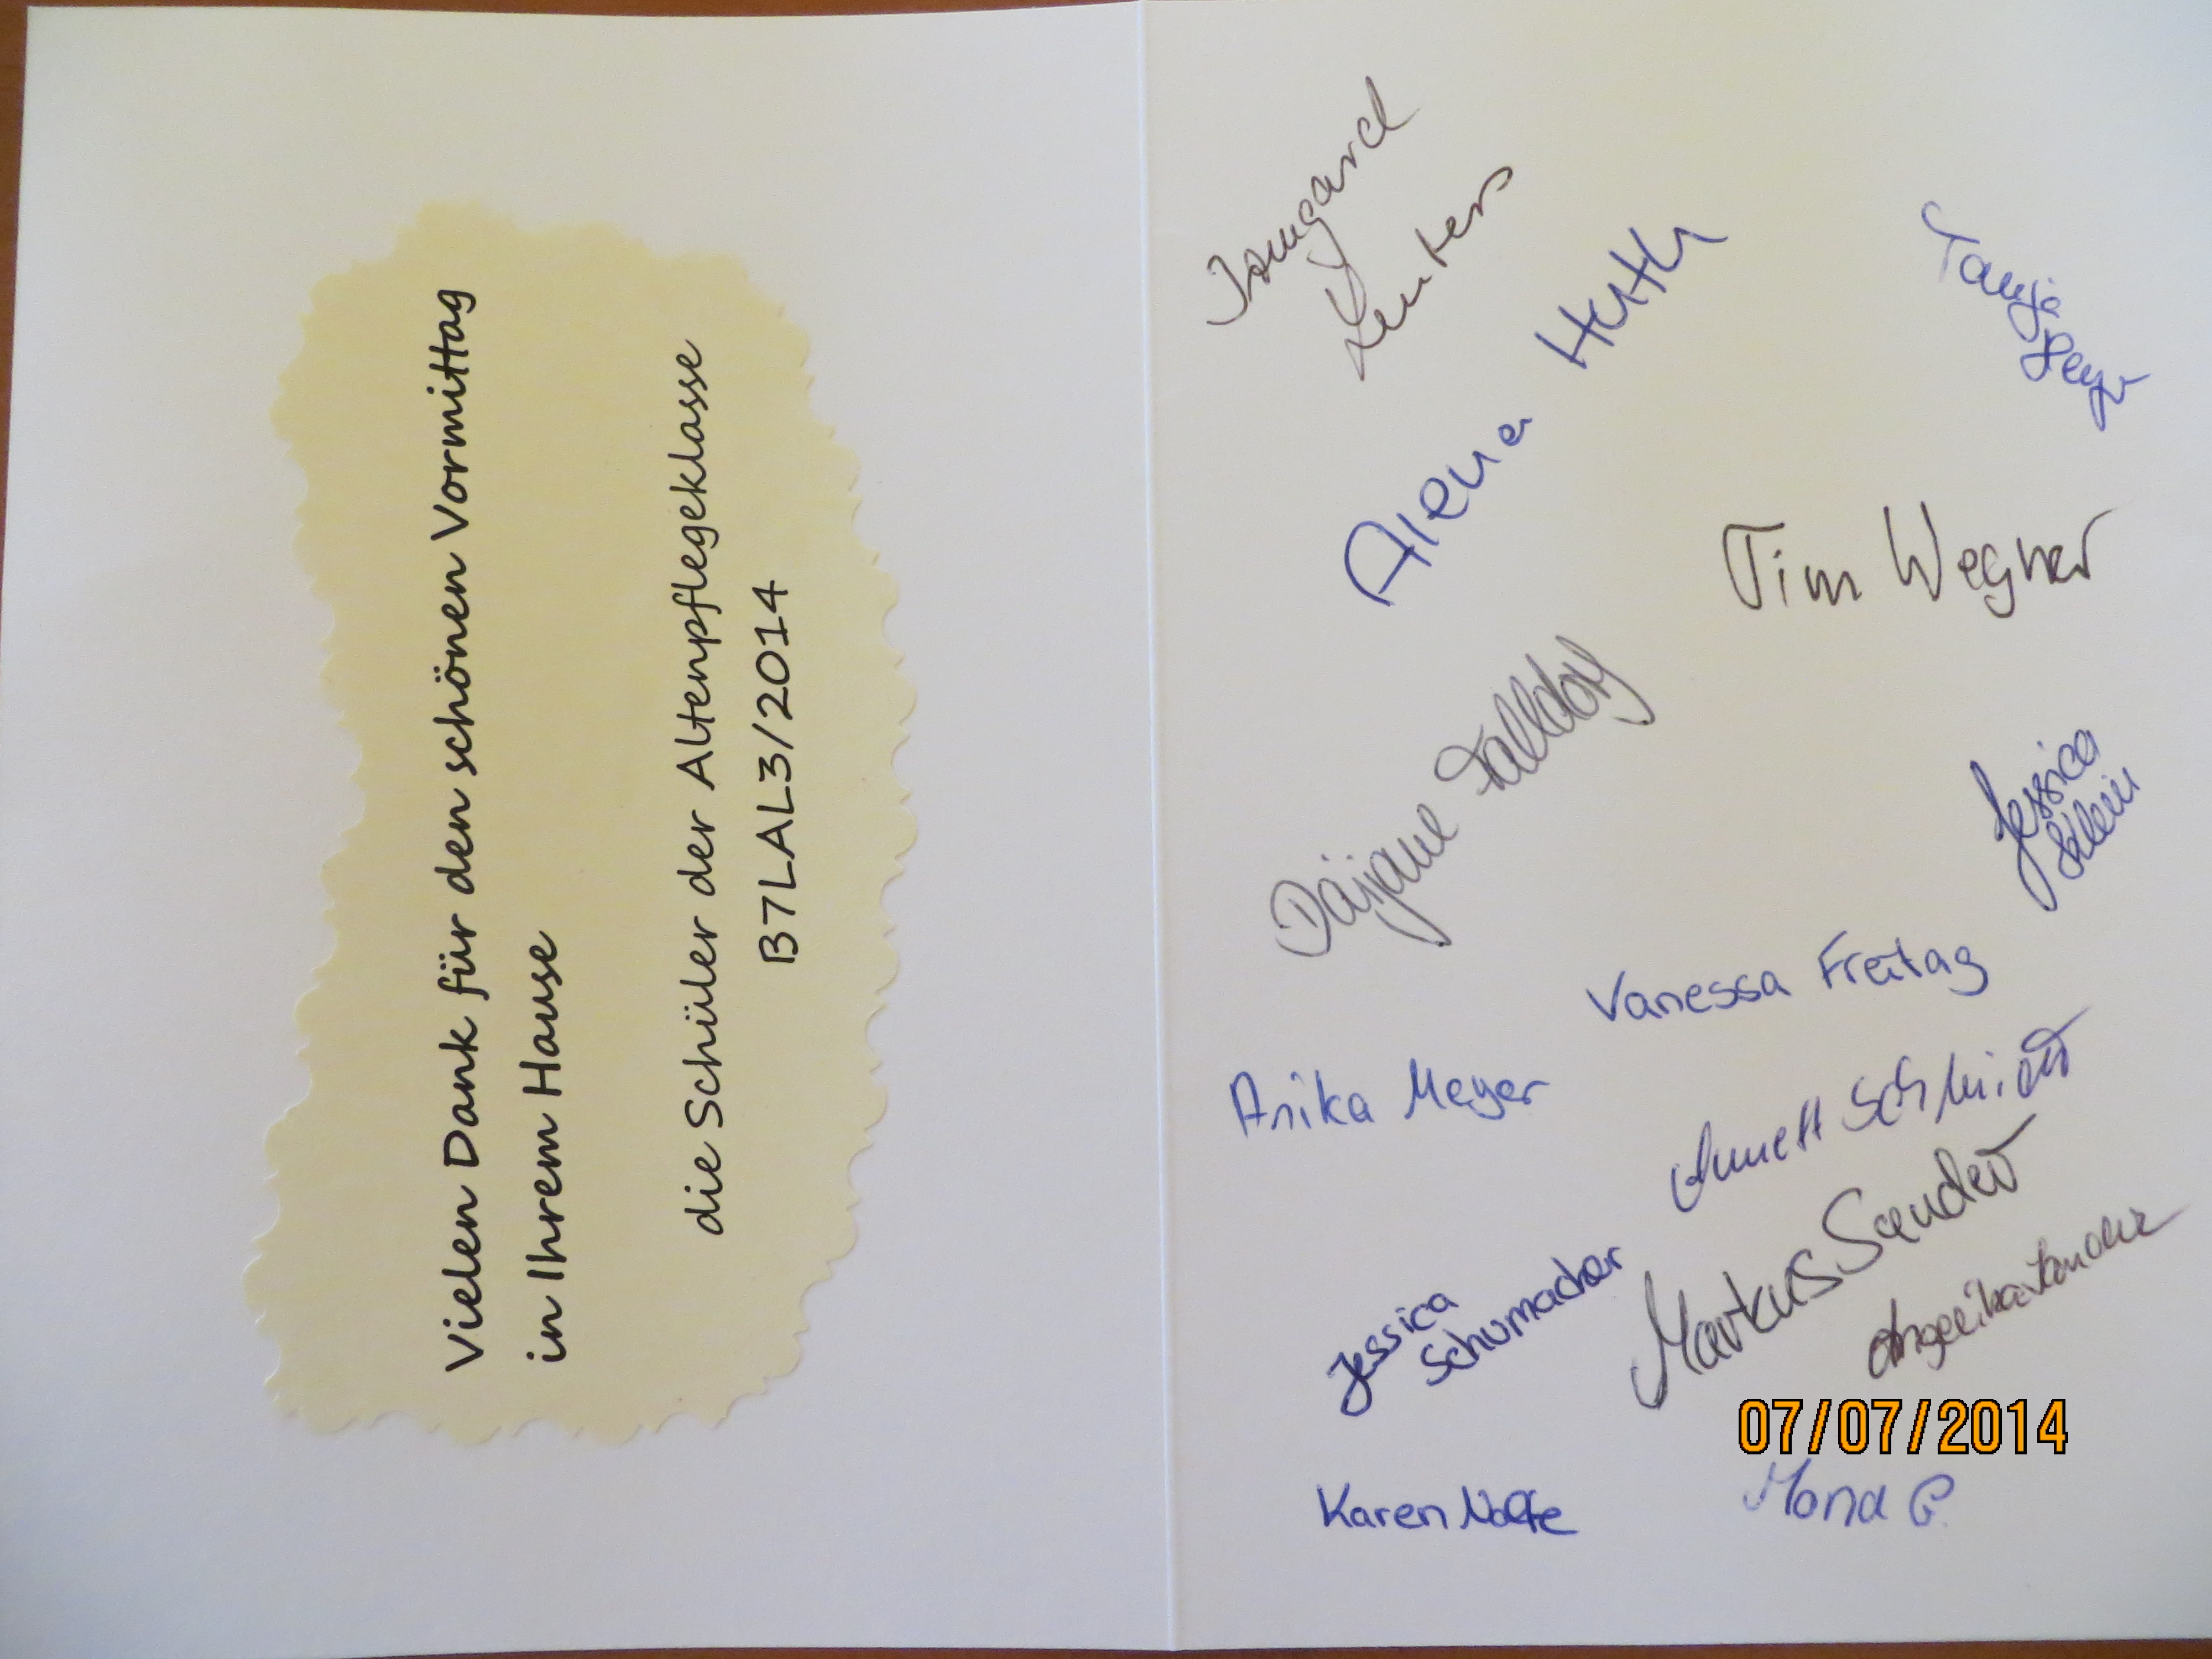 Vielen Dank für den schönen Vormittag
in Ihrem Hause
die Schüler der Altenpflegeklasse
B7LAL3/2014
Irmgard
Alena Huth
Tanja
Tim Wegner
Dajane Falldorf
Jessica
Vanessa Freitag
Anika Meyer
Annett Schmidt
Jessica
Schumacher
Markus Sander
Angelika
07/07/2014
Karen Nolte
Mona G.